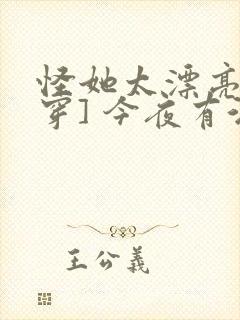 怪她太漂亮
穿] 今夜有
王公義